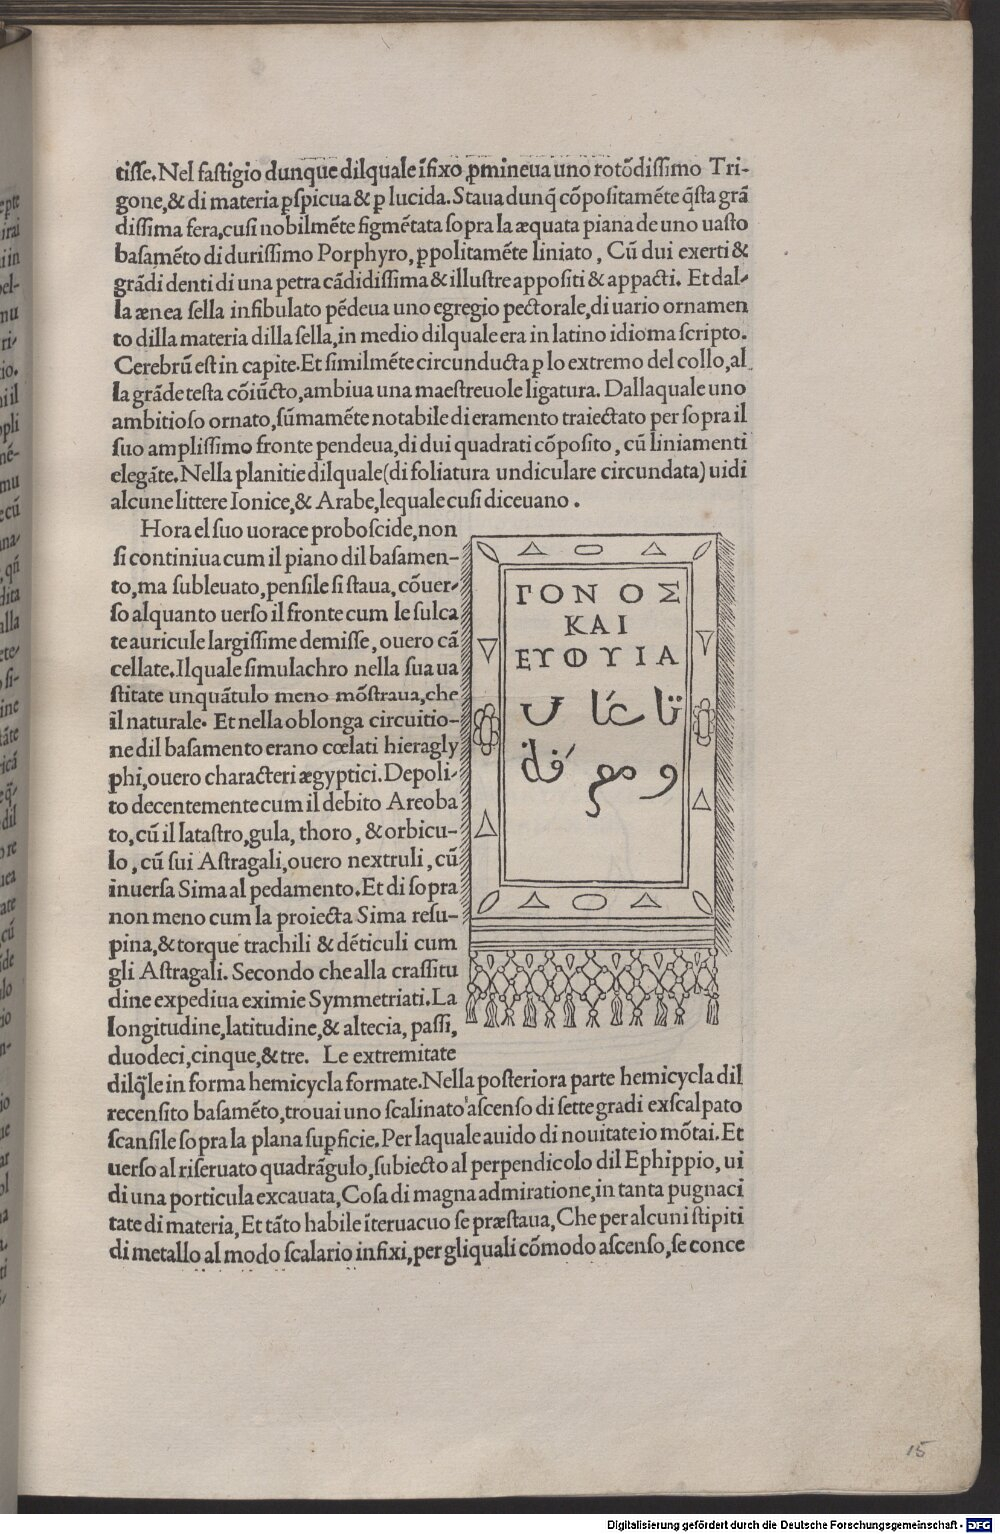 tiſſe.Nel faſtigio dunque dilquale ĩfixo ꝓmineua uno rotõdiſſimo Tri-
gone,& di materia ꝑſpicua & ꝑ lucida. Staua dunq̃ cõpoſitamẽte q̃ſta grã
diſſima fera,cuſi nobilmẽte figmẽtata ſopra la æquata piana de uno uaſto
baſamẽto di duriſſimo Porphyro, ꝑpolitamẽte liniato, Cũ dui exerti &
grãdi denti di una petra cãdidiſſima & illuſtre appoſiti & appacti. Et dal-
la ænea ſella infibulato pẽdeua uno egregio pectorale,di uario ornamen
to dilla materia dilla ſella,in medio dilquale era in latino idioma ſcripto.
Cerebrũ eſt in capite.Et ſimilmẽte circunducta ꝑ lo extremo del collo,al
la grãde teſta cõiũcto,ambiua una maeſtreuole ligatura. Dallaquale uno
ambitioſo ornato,ſũmamẽte notabile di eramento traiectato per ſopra il
ſuo ampliſſimo fronte pendeua,di dui quadrati cõpoſito, cũ liniamenti
elegãte.Nella planitie dilquale(di foliatura undiculare circundata) uidi
alcune littere Ionice,& Arabe,lequale cuſi diceuano.
Hora el ſuo uorace proboſcide,non
ſi continiua cum il piano dil baſamen-
to,ma ſubleuato,penſile ſi ſtaua, cõuer-
ſo alquanto uerſo il fronte cum le ſulca
te auricule largiſſime demiſſe, ouero cã
cellate.Ilquale ſimulachro nella ſua ua
ſtitate unquãtulo meno mõſtraua,che
il naturale. Et nella oblonga circuitio-
ne dil baſamento erano cœlati hieragly
phi,ouero characteri ægyptici.Depoli-
to decentemente cum il debito Areoba
to,cũ il lataſtro,gula, thoro, & orbicu-
lo, cũ ſui Aſtragali,ouero nextruli, cũ
inuerſa Sima al pedamento.Et di ſopra
non meno cum la proiecta Sima reſu-
pina,& torque trachili & dẽticuli cum
gli Aſtragali. Secondo che alla craſſitu
dine expediua eximie Symmetriati.La
longitudine,latitudine,& altecia, paſſi,
duodeci,cinque,& tre. Le extremitate
dilq̃le in forma hemicycla formate.Nella poſteriora parte hemicycla dil
recenſito baſamẽto,trouai uno ſcalinato aſcenſo di ſette gradi exſcalpato
ſcanſile ſopra la plana ſuꝑficie.Per laquale auido di nouitate io mõtai. Et
uerſo al riſeruato quadrãgulo,ſubiecto al perpendicolo dil Ephippio, ui
di una porticula excauata,Coſa di magna admiratione,in tanta pugnaci
tate di materia, Et tãto habile ĩteruacuo ſe præſtaua, Che per alcuni ſtipiti
di metallo al modo ſcalario infixi,per gliquali cõmodo aſcenſo,ſe conce
ΓΟΝΟΣ
ΚΑΙ
ΕΥΦΥΙΑ
15
Digitalisierung gefördert durch die Deutsche Forschungsgemeinschaft - DFG